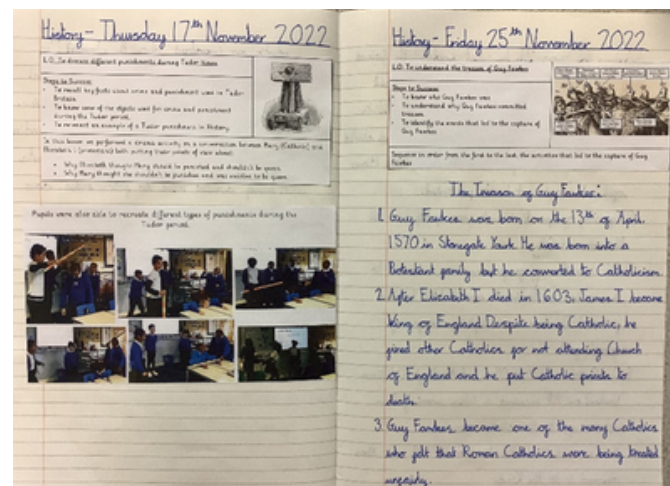 History - Thursday 17th November 2022
L.O: To discuss different punishments during Tudor times
Steps to Success:
• To recall key facts about crime and punishment used in Tudor
Britain
• To know some of the objects used for crime and punishment
during the Tudor period.
• To reenact an example of a Tudor punishment in History
In this lesson we performed a drama activity on a conversation between Mary (Catholic) and
Elizabeth I (protestant) both putting their points of view about:
• Why Elizabeth thought Mary should be punished and shouldn't be queen.
• Why Mary thought she shouldn't be punished and was entitled to be queen.
Pupils were also able to recreate different types of punishments during the
Tudor period.
History - Friday 25th November 2022
L.O: To understand the treason of Guy Fawkes
Steps to Success:
• To know who Guy Fawkes was
• To understand why Guy Fawkes committed
treason
• To identify the events that led to the capture of
Guy Fawkes
Sequence in order from the first to the last, the activities that led to the capture of Guy
Fawkes
The Treason of Guy Fawkes:
1. Guy Fawkes was born on the 13th of April,
1570 in Stonegate York. He was born into a
Protestant family but he converted to Catholicism.
2. After Elizabeth I died in 1603, James I became
King of England. Despite being Catholic, he
fined other Catholics for not attending Church
of England and he put Catholic priests to
death.
3. Guy Fawkes became one of the many Catholics
who felt that Roman Catholics were being treated
unfairly.